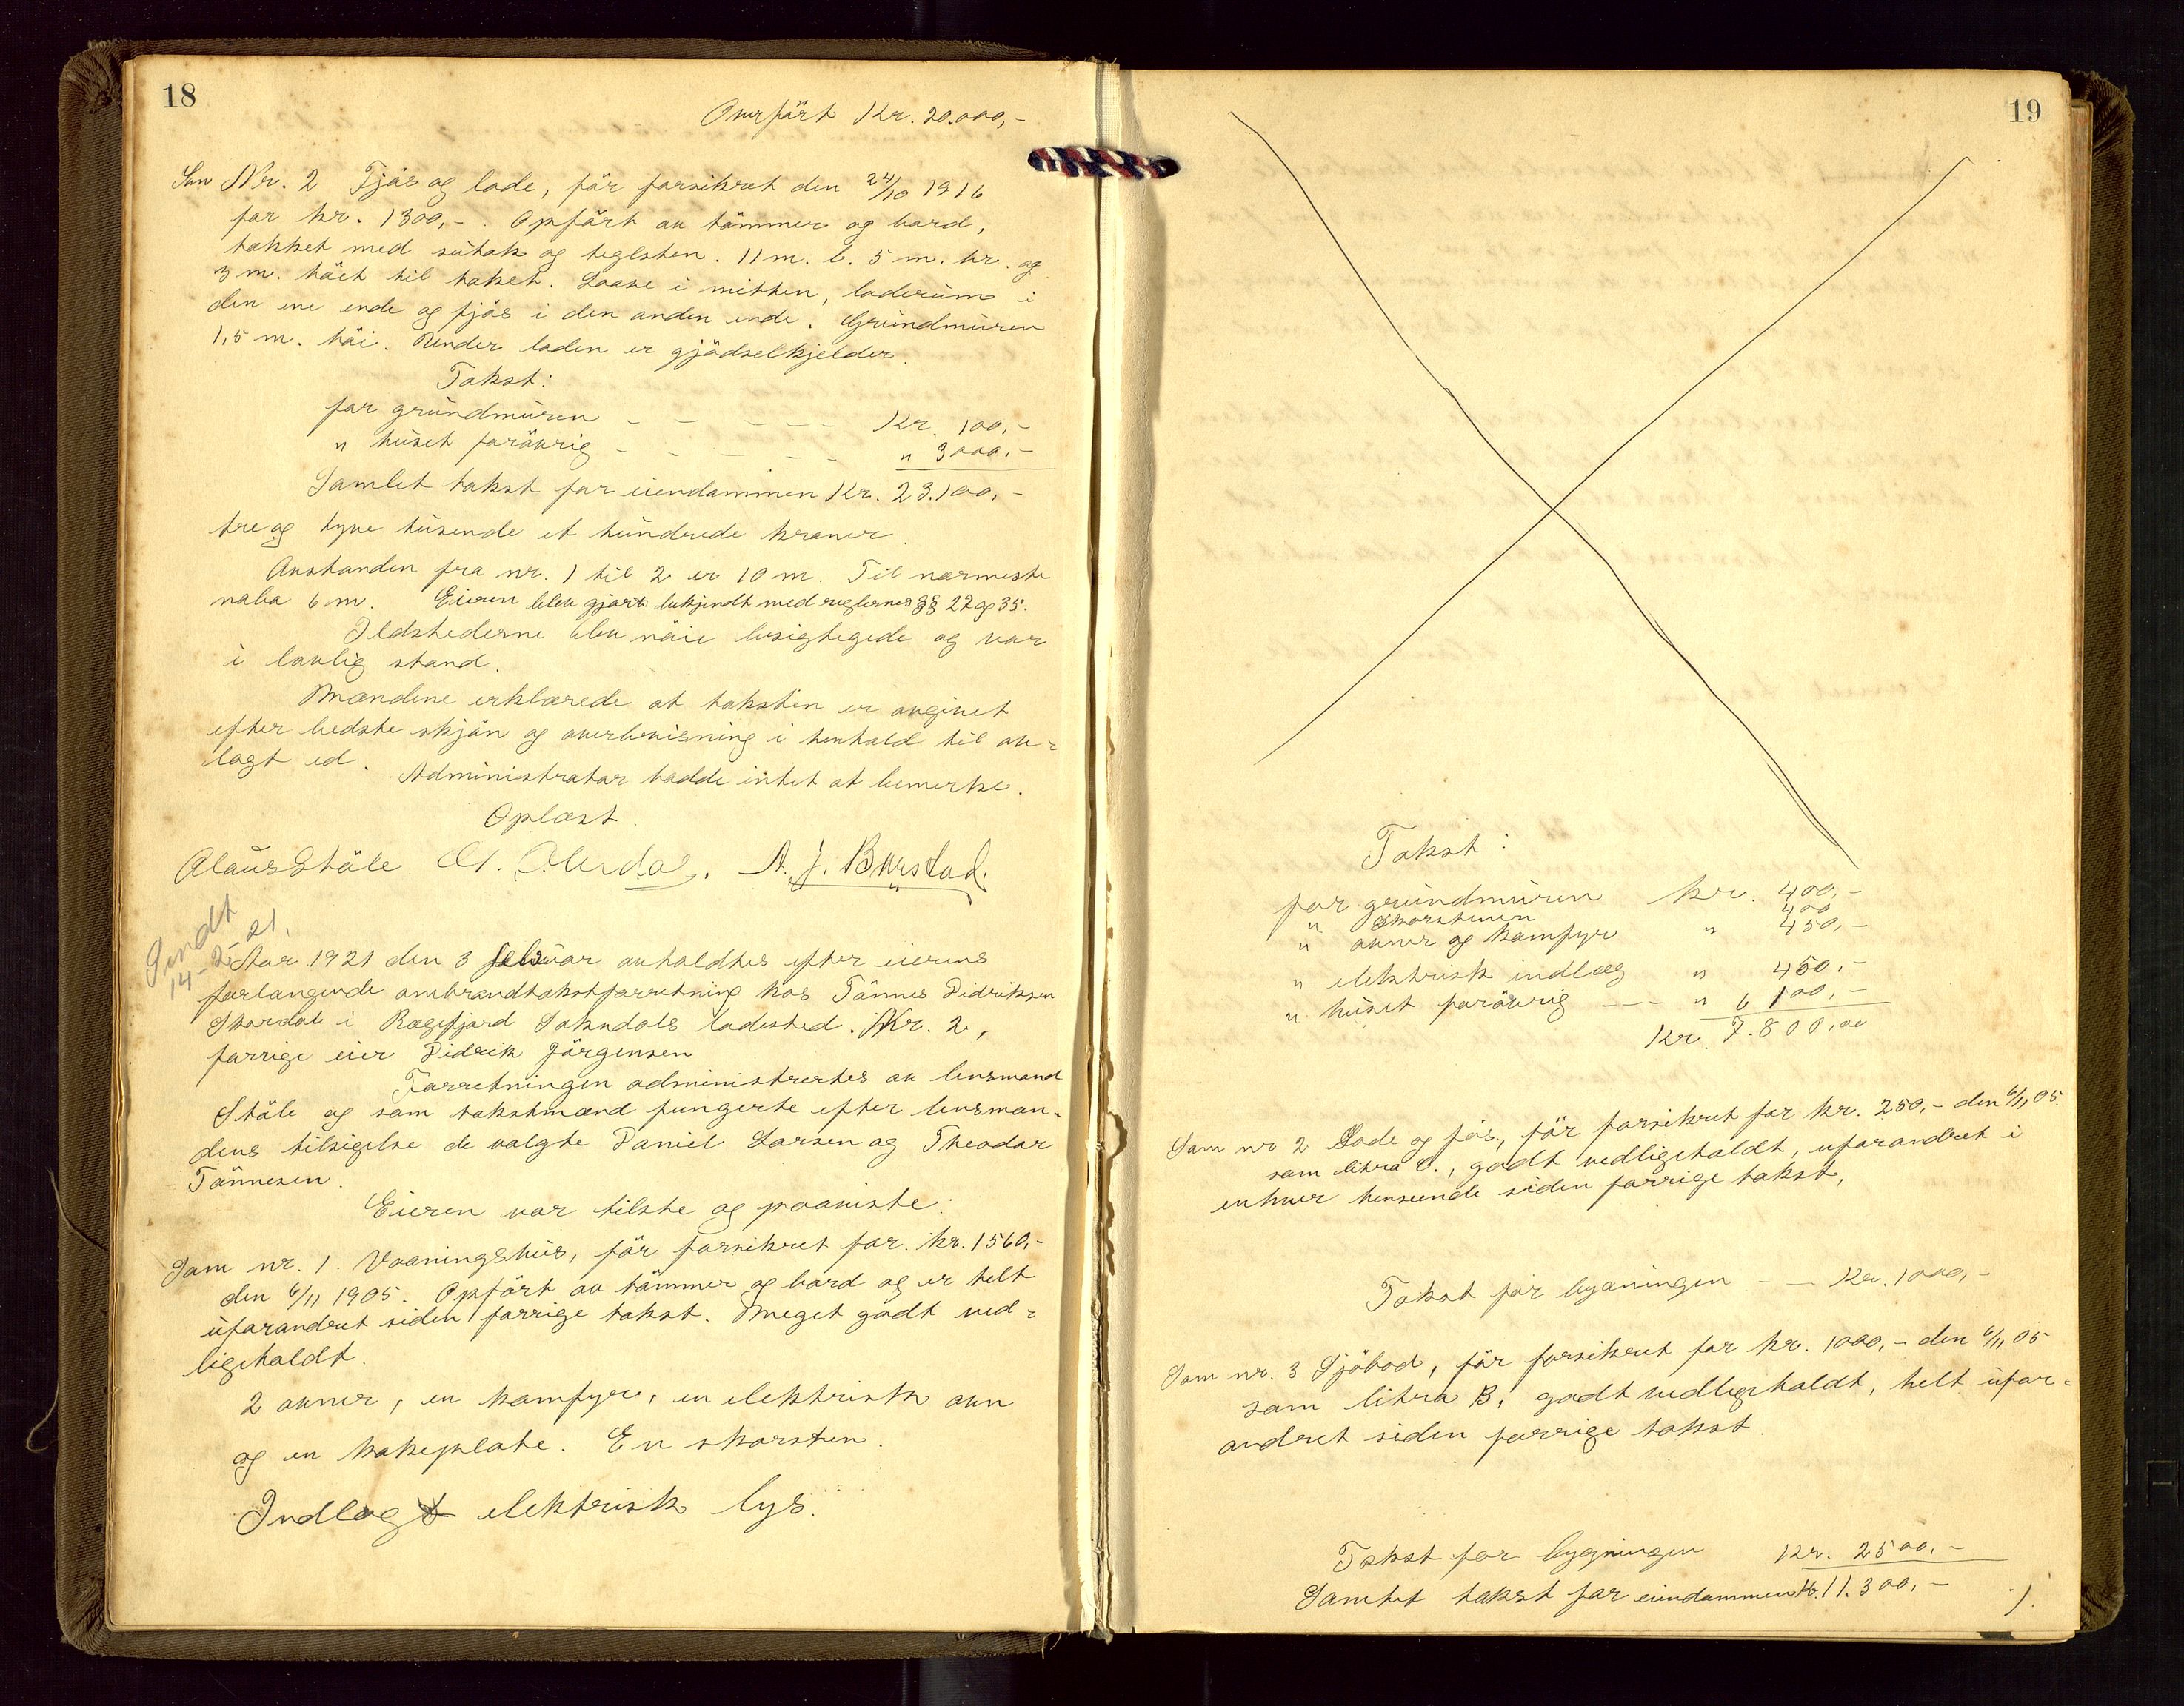 18
Overført Kr. 20.000,-
Som Nr. 2 Fjös og lade, för forsikret den 24/10 1916
for kr. 1300,-. Opfört av tömmer og bord,
takket med sutak og teglsten. 11 m. l. 5 m. br. og
3 m. höit til taket. Laave i mitten, laderum i
den ene ende og fjös i den anden ende. Grundmuren
1,5 m. höi. Under laden er gjödselkjelder.
Takst:
for grundmuren - - - - - Kr. 100,-
" huset forövrig - - - - - " 3000,-
Samlet takst for eiendommen Kr. 23.100,-
treog tyve tusende et hundrede kroner.
Avstanden fra nr. 1 til 2 er 10 m. Til nærmeste
nabo 6 m. Eieren blev gjort bekjendt med reglernes §§ 27 og 35.
Ildstederne blev nöie besigtigede og var
i lovlig stand.
Mændene erklærede at taksten er avgivet
efter bedste skjön og overbevisning i henhold til av-
lagt ed. Administrator hadde intet at bemerke.
Oplæst.
Olaus Ståle A. J. Barstad.
Sendt
14-2-21.
Aar 1921 den 3 februar avholdtes efter eierens
forlangende ombrandtakstforretning hos Tönnes Didriksen
Skardal i Rægefjord Sokndals ladested. Nr. 2,
forrige eier Didrik Jörgensen
Forretningen administrertes av lensmand
Ståle og som takstmænd fungerte efter lensman-
dens tilsigelse de valgte Daniel Larsen og Theodor
Tönnesen.
Eieren var tilste og paaviste:
Som nr. 1. Vaaningshus, för forsikret for kr. 1560,-
den 6/11 1905. Opfört av tömmer og bord og er helt
uforandret siden forrige takst. Meget godt ved-
ligeholdt.
2 ovner, en komfyr, en elektrisk ovn
og en kokeplate. En skorsten.
Indlagt elektrisk lys.
19
Takst:
for grundmuren kr. 400,-
" skorstenen 400
" ovner og komfyr " 450,-
" elektrisk indlæg " 450,-
" huset forövrig --- " 6100,-
Kr. 7.800,00
Som nr 2 Lade og fjös, för forsikret for kr. 250,- den 6/11 05.
som litra C., godt vedligeholdt, uforandret i
enhver henseende siden forrige takst,
Takst for bygningen - - Kr. 1000,-
Som nr. 3 Sjöbod, för forsikret for kr. 1000,- den 6/11 05
som litra B, godt vedligeholdt, helt ufor-
andret siden forrige takst.
Takst for bygningen Kr. 2500,-
Samlet takst for eiendommen Kr. 11.300,-